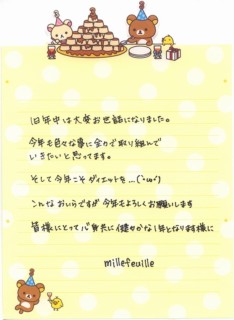 旧年中は大変お世話になりました。
今年も色々な事に全力で取り組んで
いきたいと思ってます。
そして今年こそダイエットを…(´・ω・`)
こんなおいらですが今年もよろしくお願いします
皆様にとって心身共に穏やかな1年となります様に
millefeuille